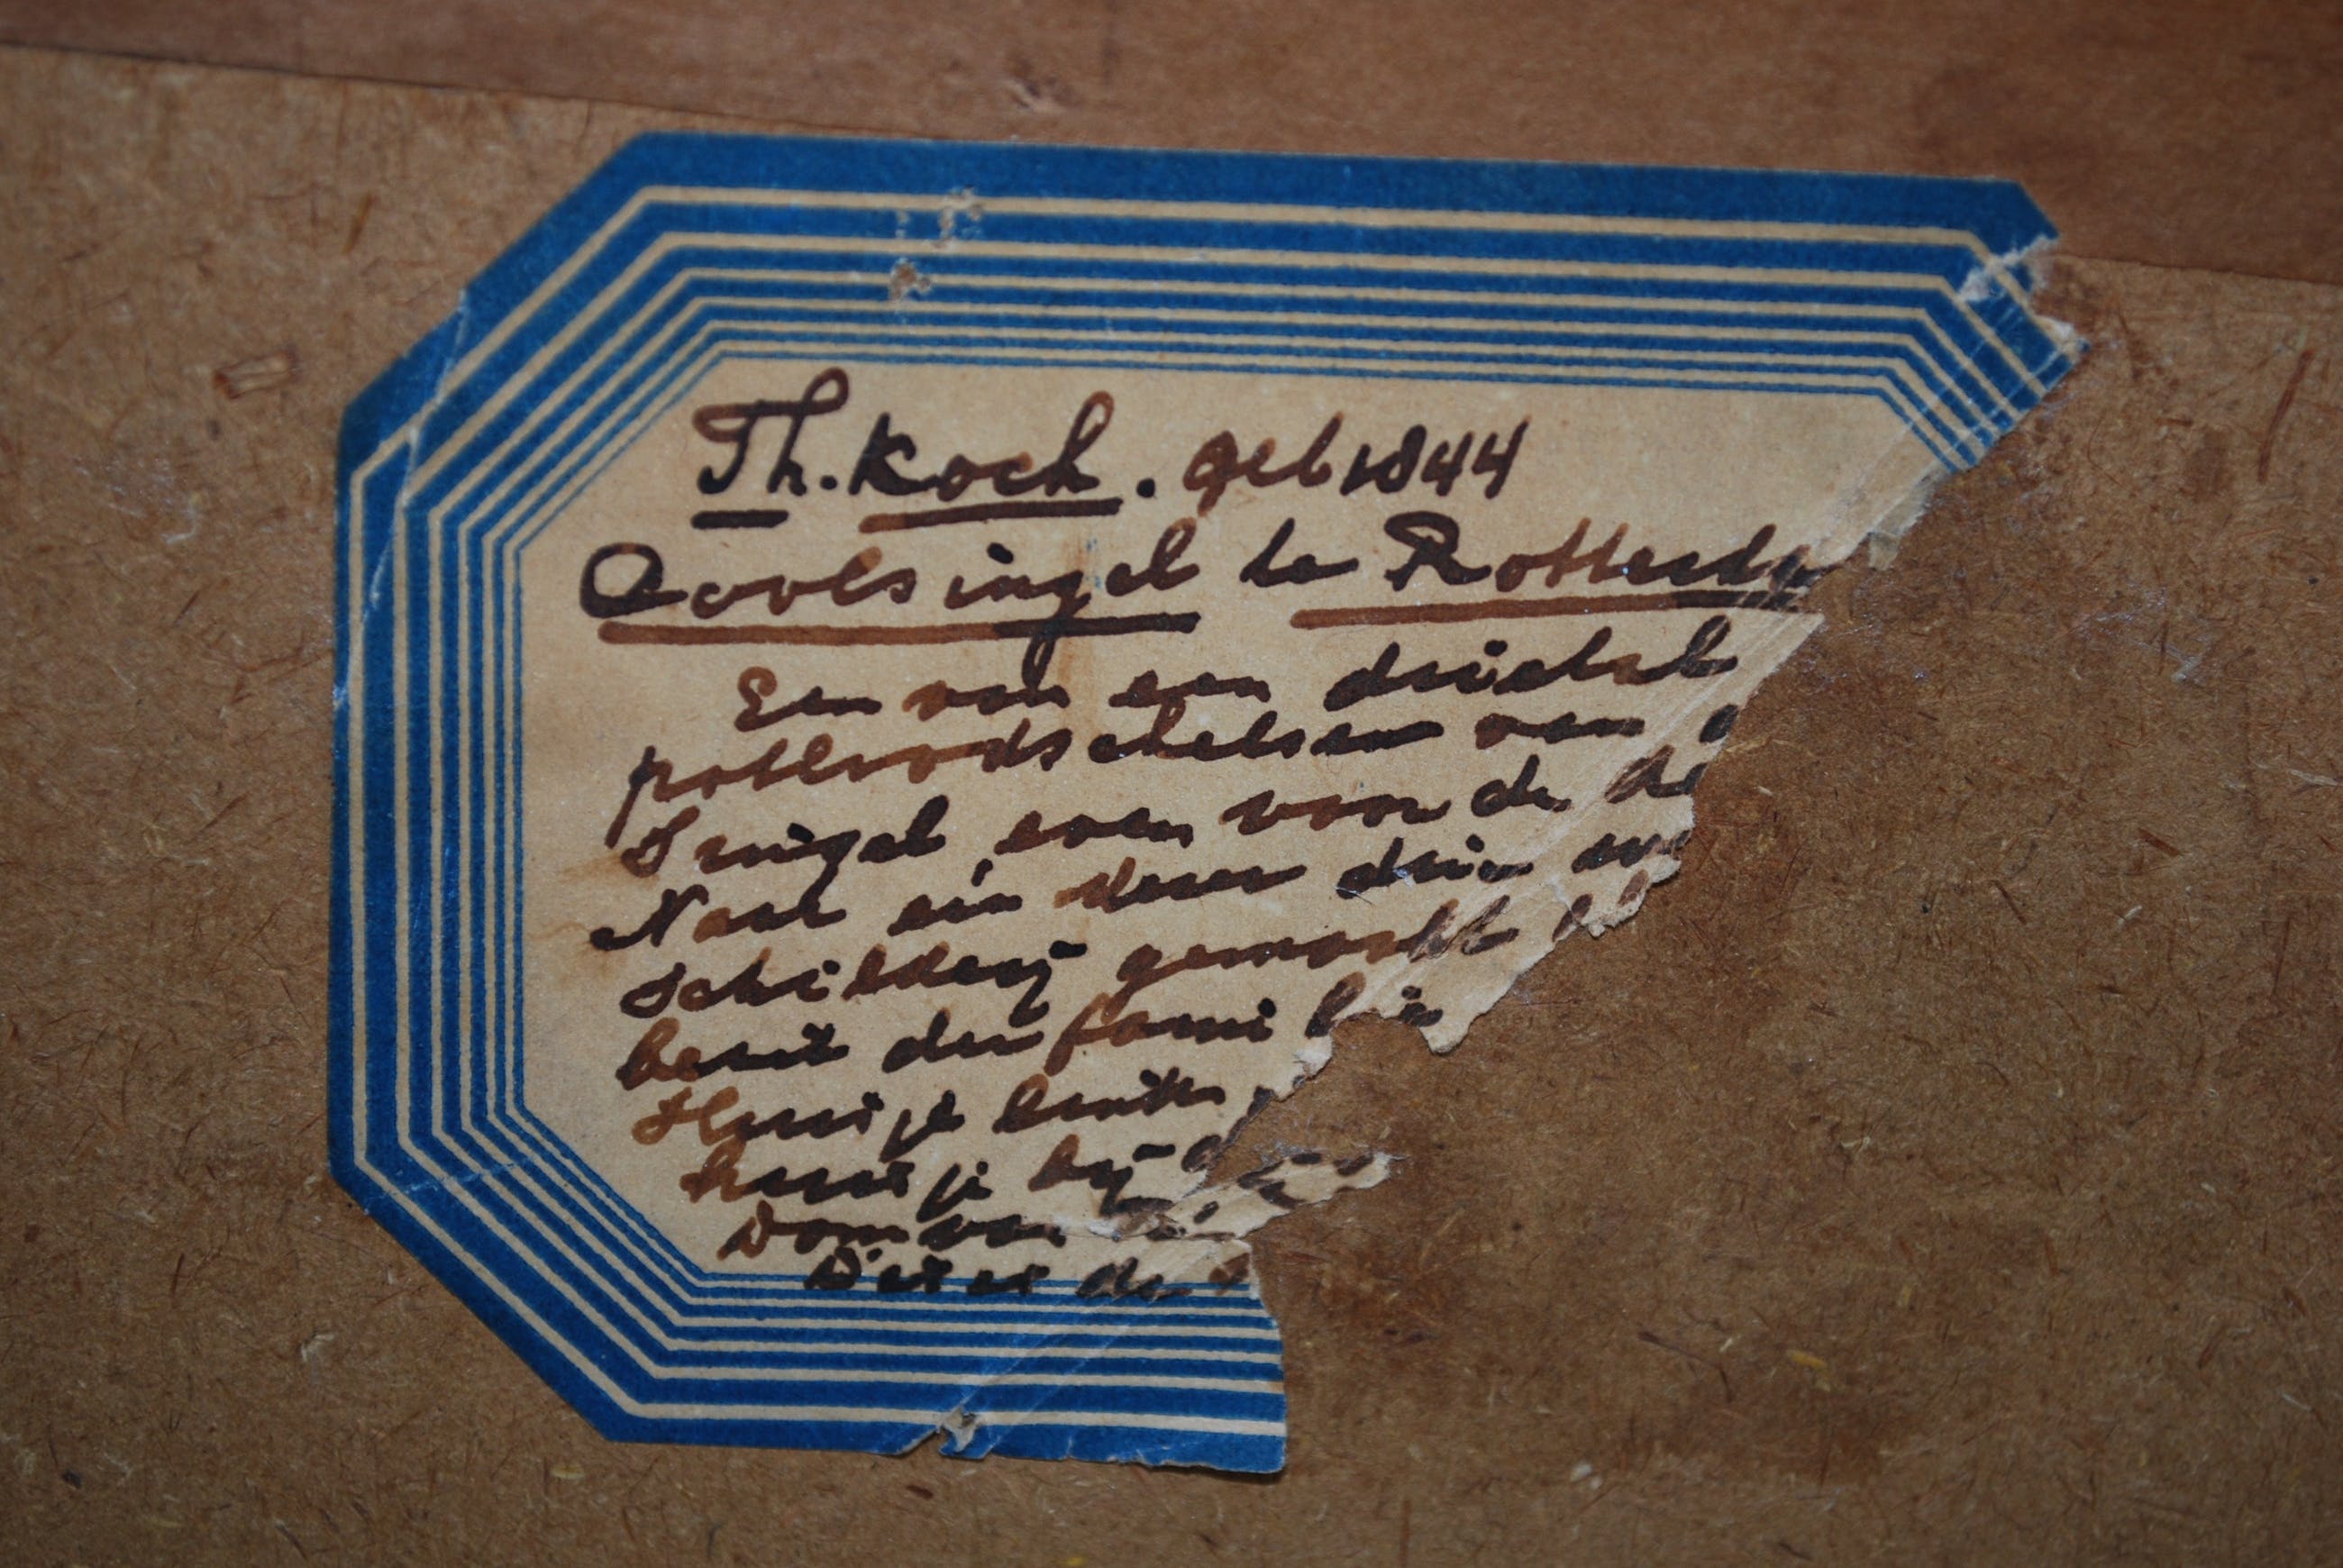 Th. Koch. geb 1844
Coolsingel te Rotterda
Een van een drietal
potloodschetsen van
Singel even voor de
Naar ein dezer drie
schilderij gemaakt
bezit der familie
Huisje buiten
huisje bij
Dom van
Dit is de